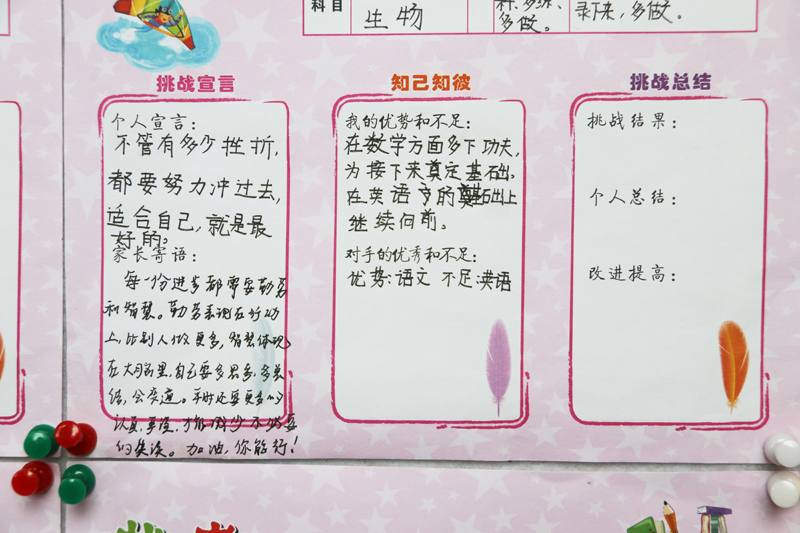 科目
生物
多做。
录下来，多做。
挑战宣言
个人宣言：
不管有多少挫折，
都要努力冲过去，
适合自己，就是最
好的。
家长寄语：
每一份进步都需要勤劳
和智慧。勤劳表现在行动
上，比别人做更多，智慧体现
在大脑里，自己要多思多，多总
结，会变通。平时还要更多的
认真，要
的失误。加油，你能行！
知己知彼
我的优势和不足：
在数学方面多下功夫，
为接下来奠定基础。
在英语方的基础上
继续向前。
对手的优秀和不足：
优势：语文 不足：英语
挑战总结
挑战结果：
个人总结：
改进提高：